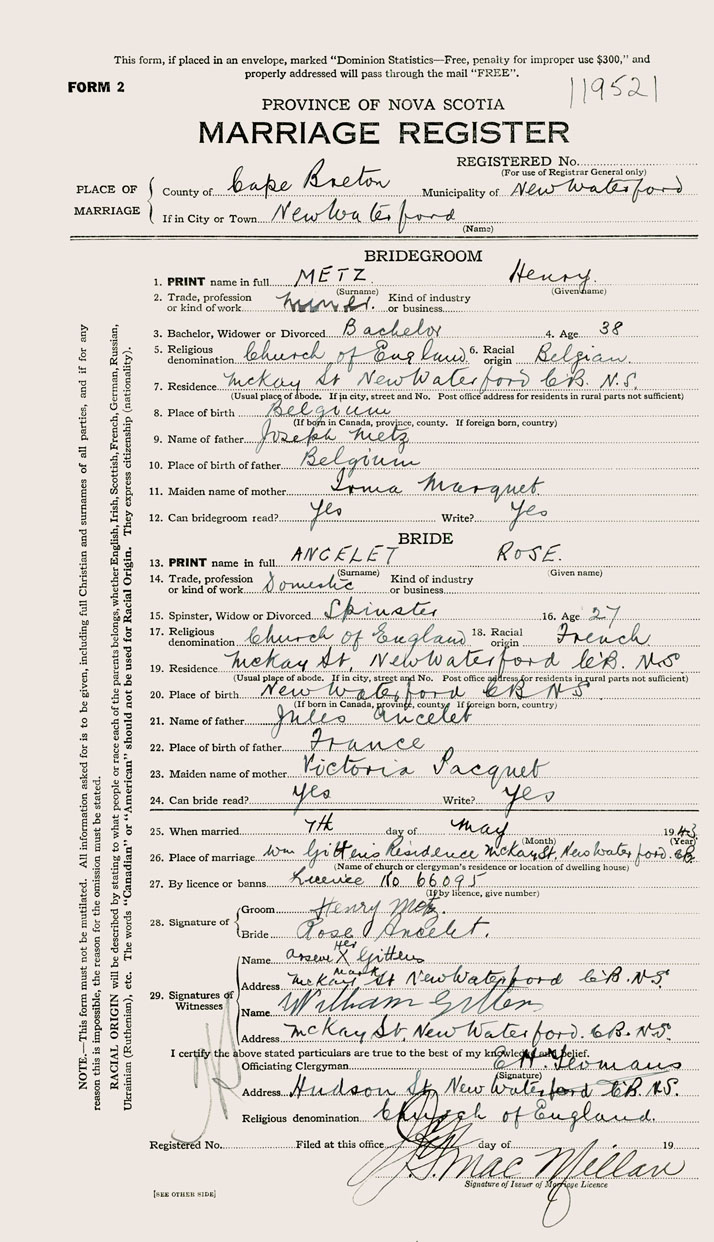 This form, if placed in an envelope, marked "Dominion Statistics—Free, penalty for improper use $300," and
properly addressed will pass through the mail "FREE".
FORM 2
119521
PROVINCE OF NOVA SCOTIA
MARRIAGE REGISTER
REGISTERED No.
(For use of Registrar General only)
PLACE OF MARRIAGE
County of Cape Breton Municipality of New Waterford
If in City or Town New Waterford
(Name)
BRIDEGROOM
1. PRINT name in full METZ Henry.
(Surname) (Given name)
2. Trade, profession or kind of work Miner. Kind of industry or business
3. Bachelor, Widower or Divorced Bachelor 4. Age 38
5. Religious denomination Church of England 6. Racial origin Belgian.
7. Residence McKay St New Waterford C.B. N.S.
(Usual place of abode. If in city, street and No. Post office address for residents in rural parts not sufficient)
8. Place of birth Belgium
(If born in Canada, province, county. If foreign born, country)
9. Name of father Joseph Metz
10. Place of birth of father Belgium
11. Maiden name of mother Irma Marquet
12. Can bridegroom read? Yes Write? Yes
BRIDE
13. PRINT name in full ANCELET ROSE.
(Surname) (Given name)
14. Trade, profession or kind of work Domestic Kind of industry or business
15. Spinster, Widow or Divorced Spinster 16. Age 27
17. Religious denomination Church of England 18. Racial origin French
19. Residence McKay St, New Waterford C.B. N.S.
(Usual place of abode. If in city, street and No. Post office address for residents in rural parts not sufficient)
20. Place of birth New Waterford CB NS.
(If born in Canada, province, county. If foreign born, country)
21. Name of father Jules Ancelet
22. Place of birth of father France
23. Maiden name of mother Victoria Pacquet
24. Can bride read? Yes Write? Yes
25. When married 7th day of May 1943
(Month) (Year)
26. Place of marriage Wm Gittens Residence McKay St, New Waterford. CB.
(Name of church or clergyman's residence or location of dwelling house)
27. By licence or banns Licence No 66095
(If by licence, give number)
28. Signature of
Groom Henry Metz.
Bride Rose Ancelet.
29. Signatures of Witnesses
Name Arsene X Gittens
her
mark
Address McKay St New Waterford C.B. N.S.
Name William Gittens
Address McKay St, New Waterford. C.B. N.S.
I certify the above stated particulars are true to the best of my knowledge and belief.
Officiating Clergyman
(Signature)
Address Hudson St New Waterford C.B. N.S.
Religious denomination Church of England.
Registered No. Filed at this office day of 19
MacMillan
Signature of Issuer of Marriage Licence
[SEE OTHER SIDE]
NOTE.—This form must not be mutilated. All information asked for is to be given, including full Christian and surnames of all parties, and if for any
reason this is impossible, the reason for the omission must be stated.
RACIAL ORIGIN will be described by stating to what people or race each of the parents belongs, whether English, Irish, Scottish, French, German, Russian,
Ukrainian (Ruthenian), etc. The words "Canadian" or "American" should not be used for Racial Origin. They express citizenship (nationality).